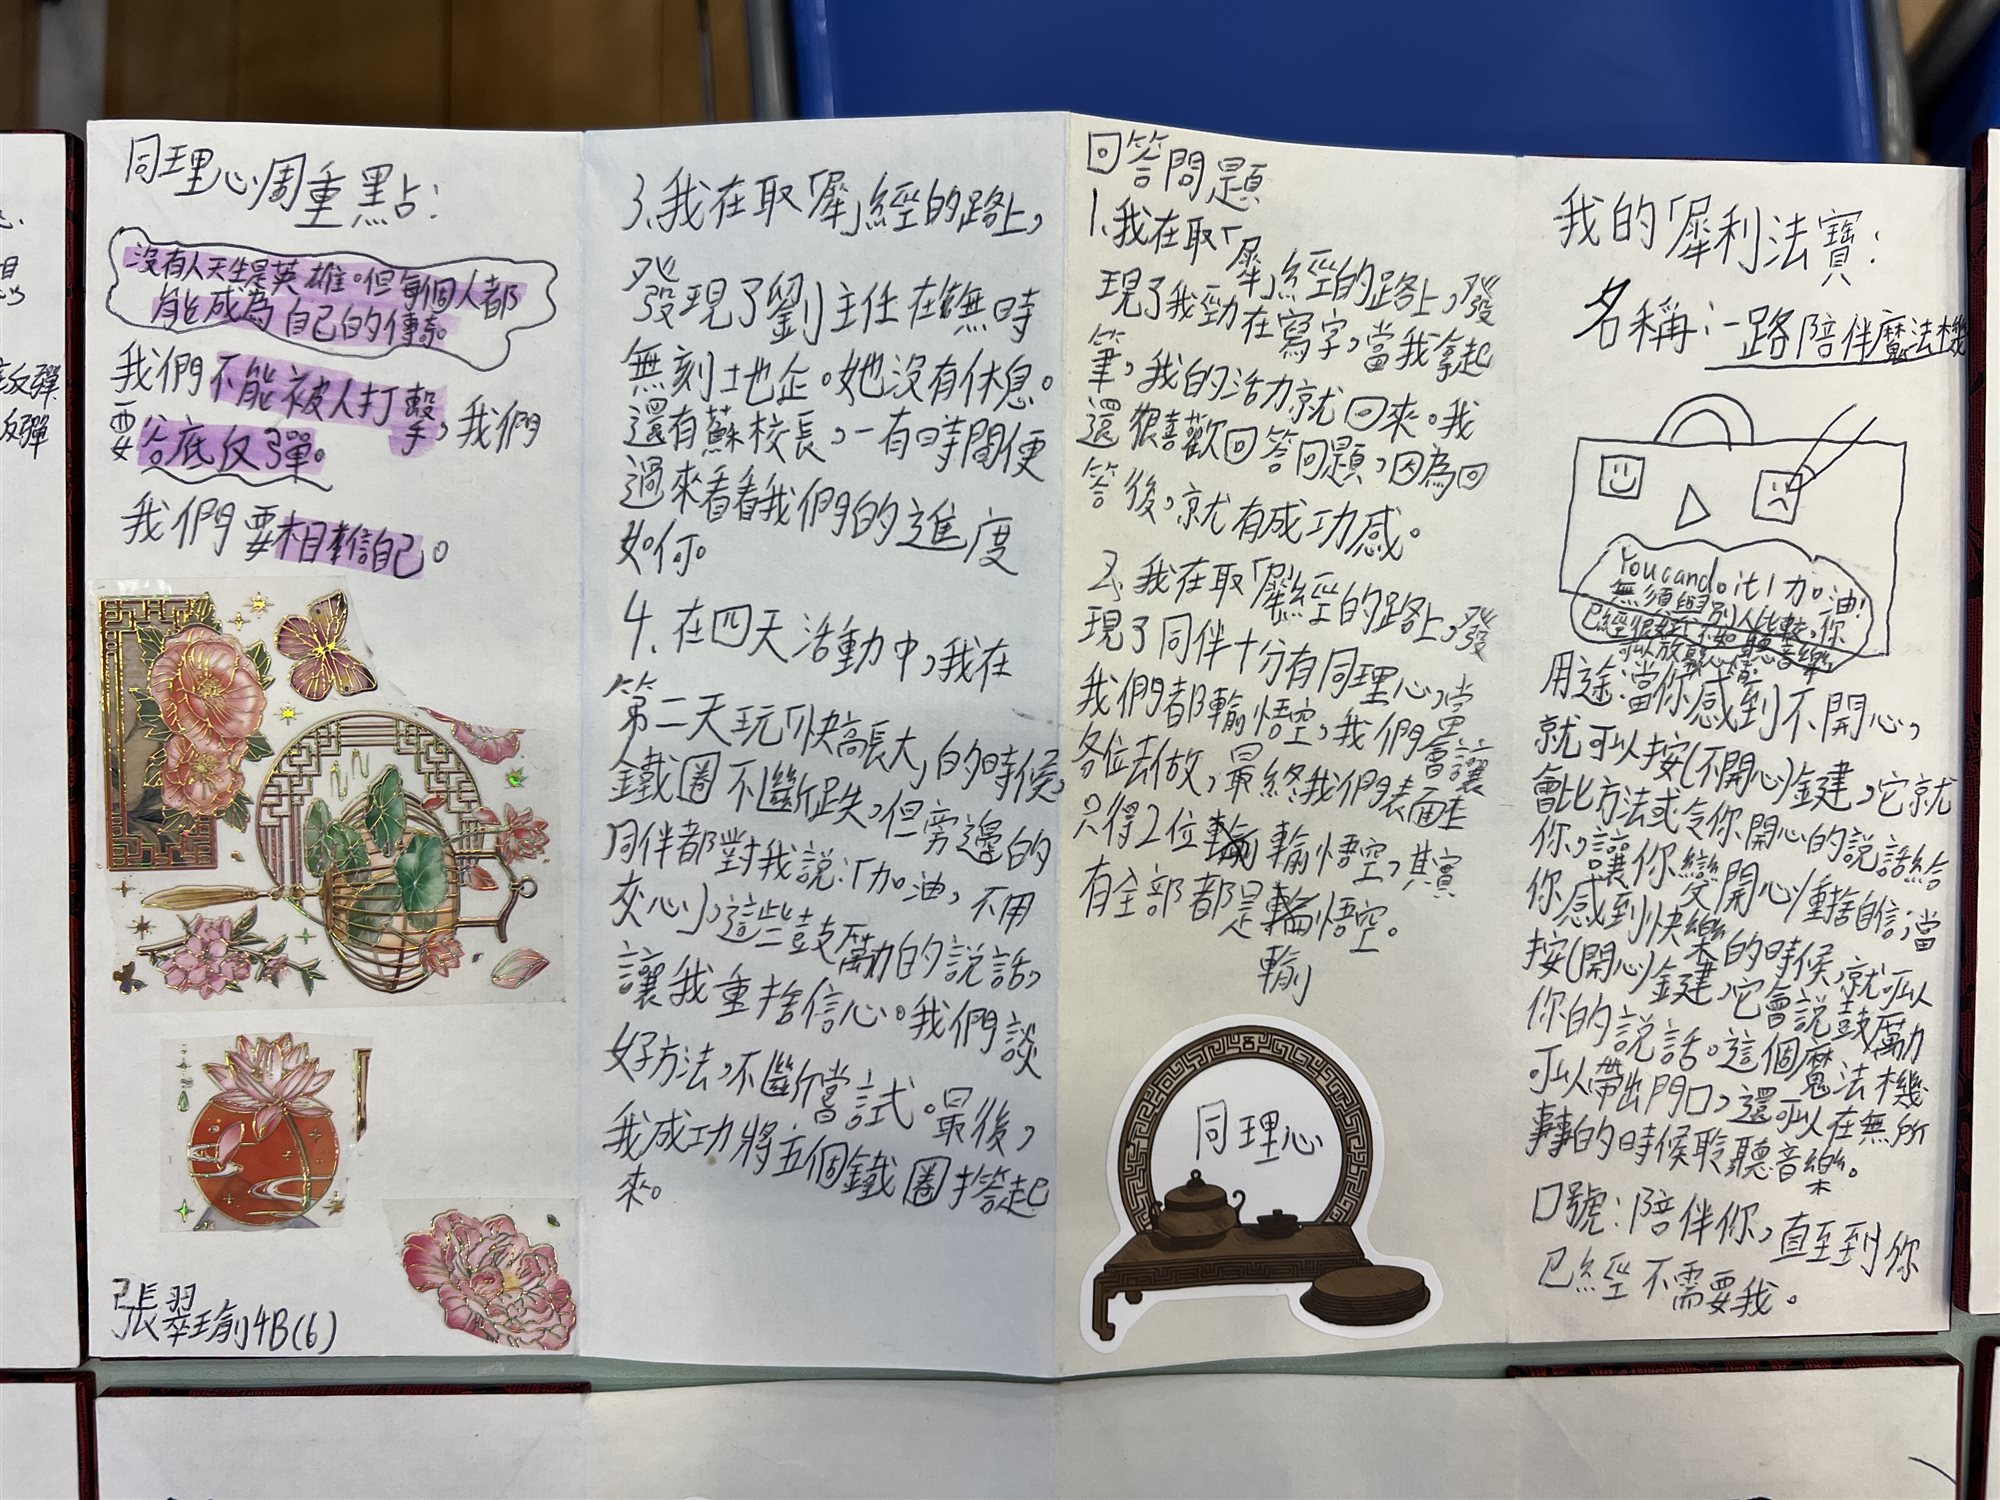 同理心周重點：
沒有人天生是英雄。但每個人都
能成為自己的傳奇。
我們不能被人打擊，我們
要谷底反彈。
我們要相信自己。
張翠瑜4B(6)
3、我在取「犀」經的路上，
發現了劉主任在無時
無刻土地企。她沒有休息。
還有蘇校長，一有時間便
過來看看我們的進度
如何。
4、在四天活動中，我在
第二天玩「快高長大」的時候，
鐵圈不斷跌，但旁邊的
同伴都對我說：「加油，不用
灰心」，這些鼓勵的說話，
讓我重捨信心。我們談
好方法，不斷嘗試。最後，
我成功將五個鐵圈搭起
來。
回答問題
1、我在取「犀」經的路上，發
現了我勁在寫字，當我拿起
筆，我的活力就回來。我
還很喜歡回答問題，因為回
答後，就有成功感。
2、我在取「犀」經的路上，發
現了同伴十分有同理心，當
我們都輸悟空，我們會讓
各位去做，最終我們表面上
只得2位輸悟空，其實
有全部都是輸悟空。
輸
同理心
我的「犀利法寶：
名稱：一路陪伴魔法機
You can do it! 加油!
無須與別人比較，你
已經很好不如聽音樂
可以放鬆心情
用途：當你感到不開心，
就可以按(不開心)鍵，它就
會比方法或令你開心的說話給
你，讓你變開心/重捨自信；當
你感到快樂的時候，就可以
按(開心)鍵，它會說鼓勵
你的說話。這個魔法機
可以帶出門口，還可以在無所
事事的時候聆聽音樂。
口號：陪伴你，直至到你
已經不需要我。